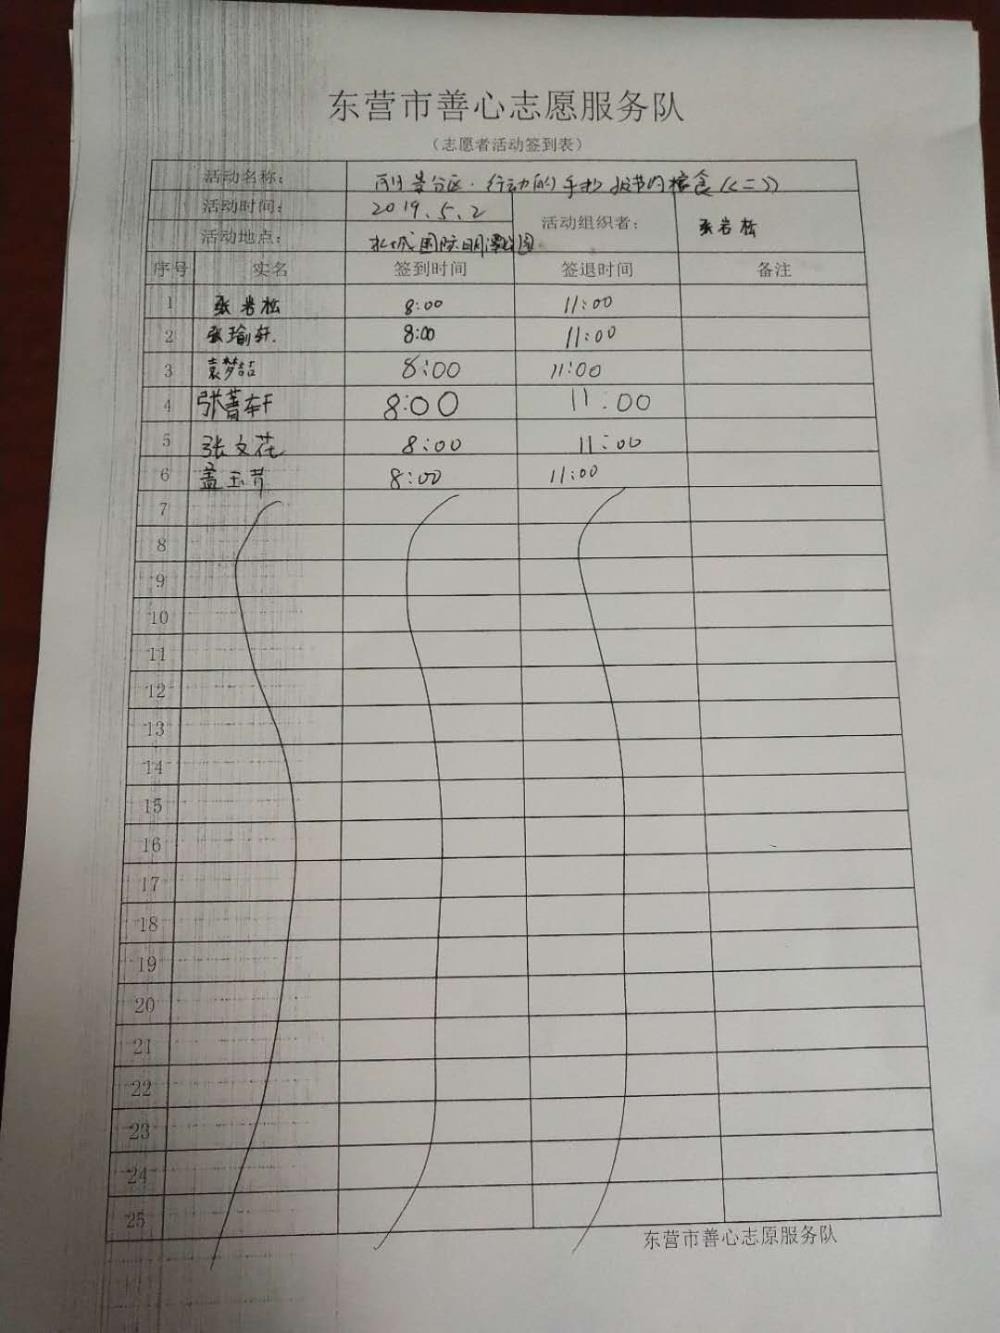 东营市善心志愿服务队
（志愿者活动签到表）
活动名称： 行动的
活动时间： 2019.5.2 活动组织者： 张岩松
活动地点： 国际明潭
序号 实名 签到时间 签退时间 备注
1 张岩松 8:00 11:00
2 张瑜轩 8:00 11:00
3 袁梦喆 8:00 11:00
4 张菁轩 8:00 11:00
5 张文花 8:00 11:00
6 孟玉芹 8:00 11:00
7
8
9
10
11
12
13
14
15
16
17
18
19
20
21
22
23
24
25
东营市善心志原服务队